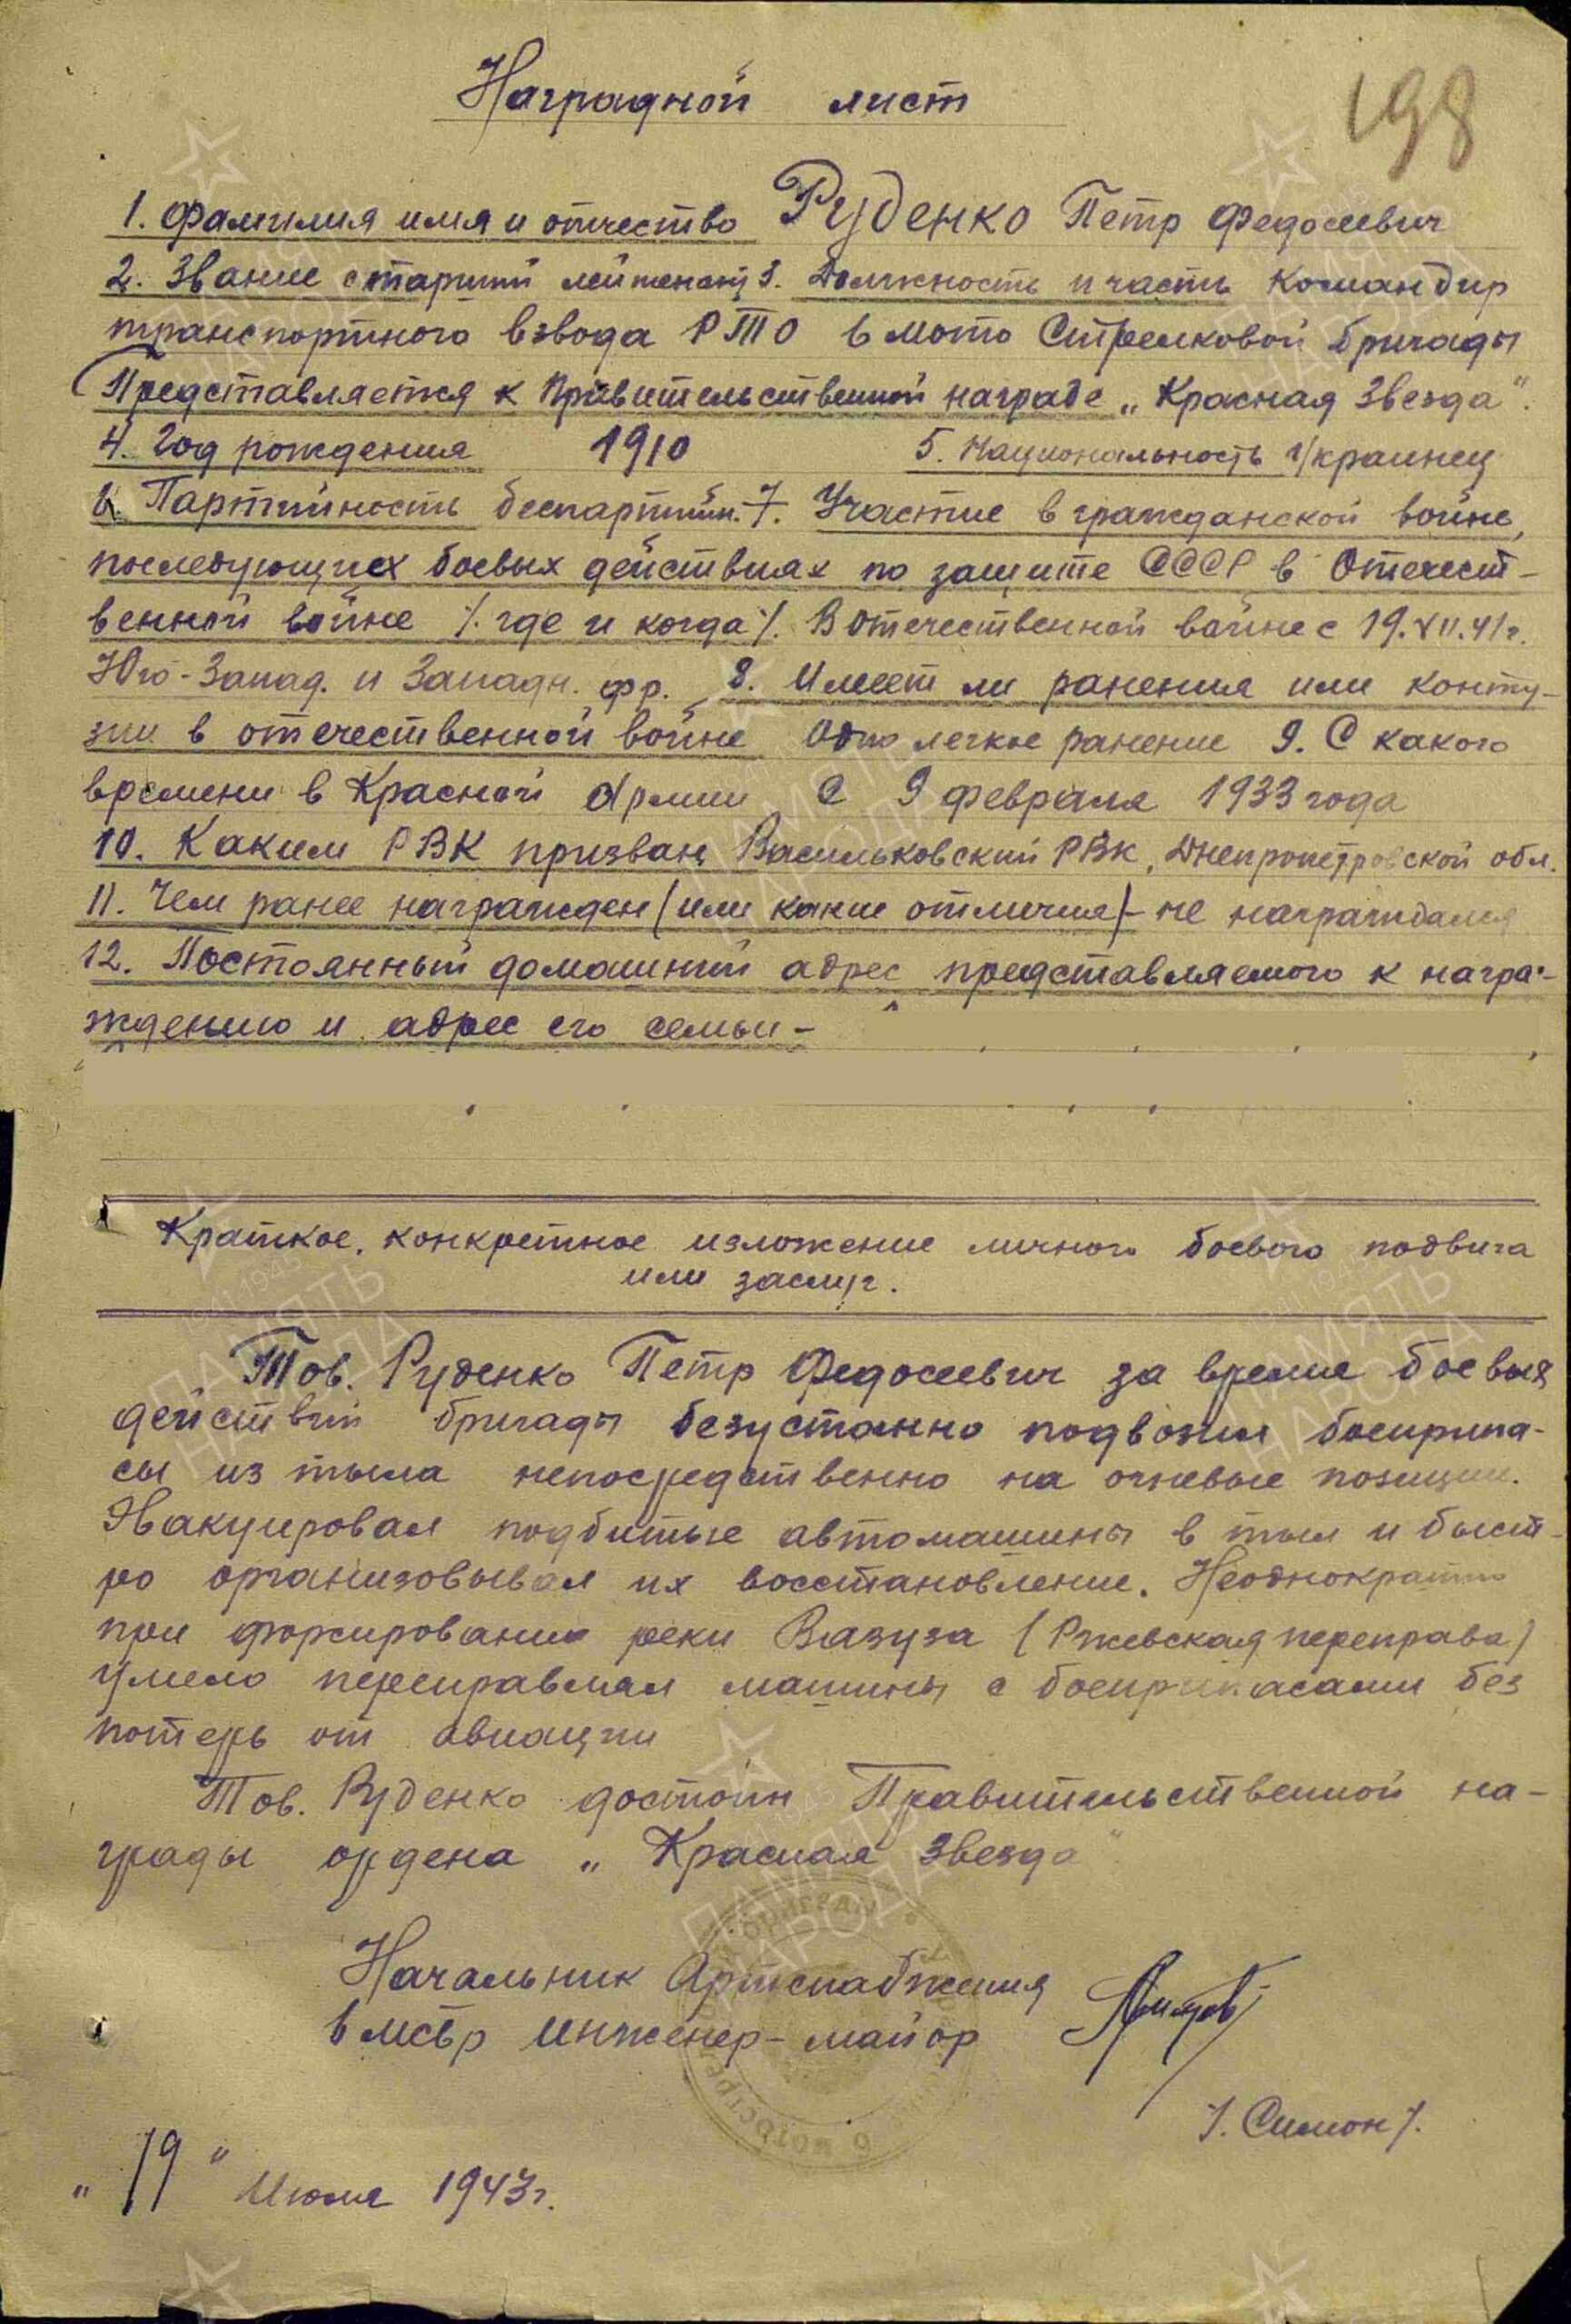 198
Наградной лист
1. Фамилия имя и отчество Руденко Петр Федосеевич
2. Звание старший лейтенант 3. Должность и часть Командир
транспортного взвода РТО 6 мото Стрелковой бригады
Представляется к Правительственной награде „Красная Звезда".
4. Год рождения 1910 5. Национальность украинец
6. Партийность беспартийн. 7. Участие в гражданской войне,
последующих боевых действиях по защите СССР в Отечест-
венной войне /.где и когда/. В отечественной войне с 19.XII.41г.
Юго-Запад. и Западн. фр. 8. Имеет ли ранения или конту-
зии в отечественной войне Одно легкое ранение 9. С какого
времени в Красной Армии С 9 февраля 1933 года
10. Каким РВК призван Васильковский РВК, Днепропетровской обл.
11. Чем ранее награжден (или какие отличия) - не награждался
12. Постоянный домашний адрес представляемого к награ-
ждению и адрес его семьи -
Краткое, конкретное изложение личного боевого подвига
или заслуг.
Тов. Руденко Петр Федосеевич за время боевых
действий бригады безустанно подвозил боеприпа-
сы из тыла непосредственно на огневые позиции.
Эвакуировал подбитые автомашины в тыл и быст-
ро организовывал их восстановление. Неоднократно
при форсировании реки Вазуза (Ржевская переправа)
умело переправлял машины с боеприпасами без
потерь от авиации
Тов. Руденко достоин Правительственной на-
грады ордена „Красная Звезда"
Начальник Артснабжения
6 мсбр инженер-майор
/.Симон/.
„19" Июля 1943г.
ПАМЯТЬ НАРОДА
1941 1945